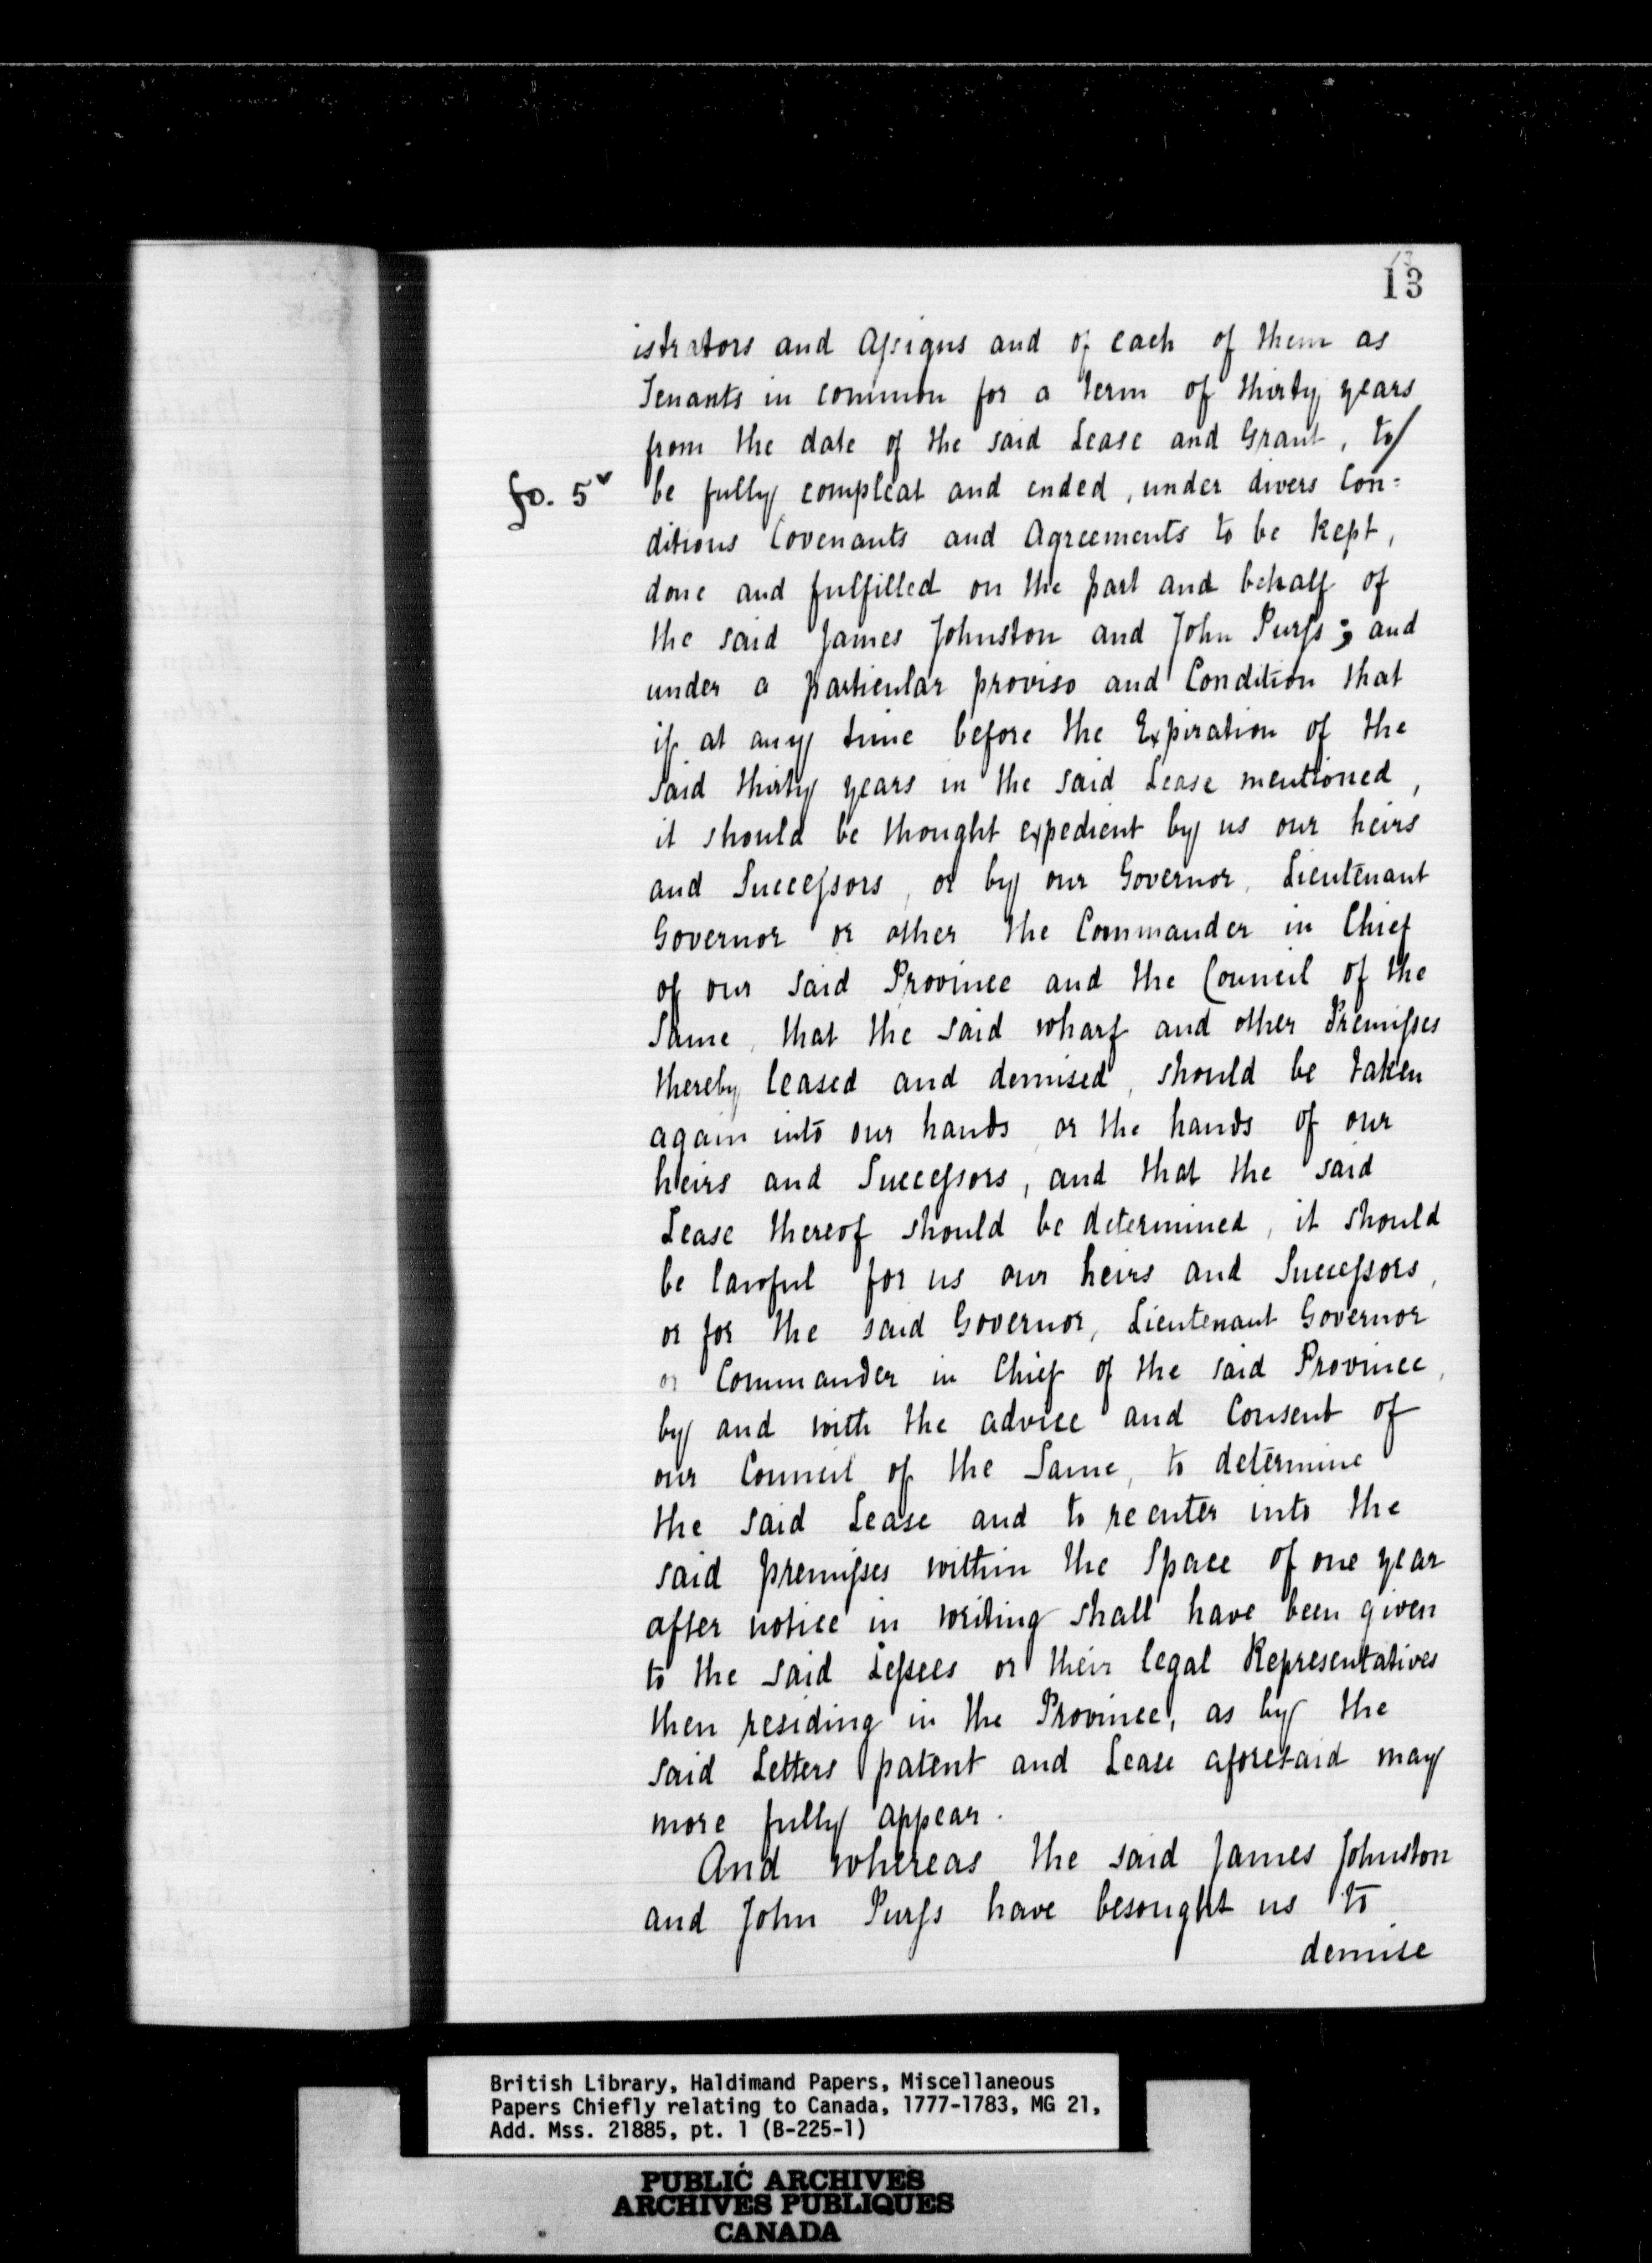 13
istrators and Assigns and of each of them as
Tenants in common for a term of thirty years
from the date of the said Lease and Grant, to/
fo. 5v be fully compleat and ended, under divers Con=
ditions Covenants and Agreements to be kept,
done and fulfilled on the part and behalf of
the said James Johnston and John Purss; and
under a particular proviso and Condition that
if at any time before the Expiration of the
said thirty years in the said Lease mentioned,
it should be thought expedient by us our heirs
and Successors, or by our Governor, Lieutenant
Governor or other the Commander in Chief
of our said Province and the Council of the
Same, that the said wharf and other Premisses
thereby leased and demised, should be taken
again into our hands or the hands of our
heirs and Successors, and that the said
Lease thereof should be determined, it should
be lawful for us our heirs and Successors,
or for the said Governor, Lieutenant Governor
or Commander in Chief of the said Province,
by and with the advice and Consent of
our Council of the Same, to determine
the said Lease and to reenter into the
said premisses within the Space of one year
after notice in writing shall have been given
to the said Lessees or their legal Representatives
then residing in the Province, as by the
said Letters patent and Lease aforesaid may
more fully appear.
And whereas the said James Johnston
and John Purss have besought us to
demise
British Library, Haldimand Papers, Miscellaneous
Papers Chiefly relating to Canada, 1777-1783, MG 21,
Add. Mss. 21885, pt. 1 (B-225-1)
PUBLIC ARCHIVES
ARCHIVES PUBLIQUES
CANADA